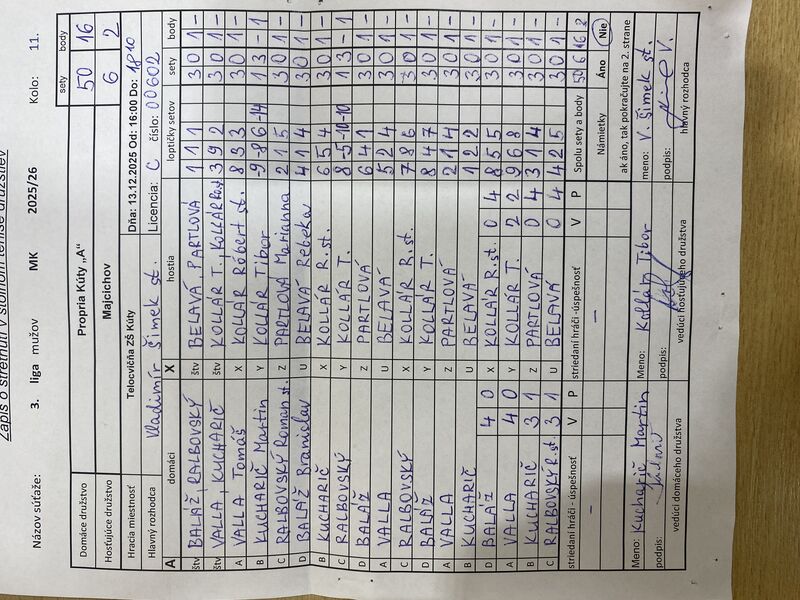 Zápis o stretnutí v stolnom tenise družstiev
Názov súťaže: 3. liga mužov MK 2025/26 Kolo: 11.
sety body
Domáce družstvo Propria Kúty „A" 50 16
Hosťujúce družstvo Majcichov 6 2
Hracia miestnosť Telocvičňa ZŠ Kúty Dňa: 13.12.2025 Od: 16:00 Do: 1810
Hlavný rozhodca Vladimír Šimek st. Licencia: C číslo: 00602
A domáci X hostia loptičky setov sety body
štv BALÁŽ, RALBOVSKÝ štv BELAVÁ, PARTLOVÁ 1 1 1 3 0 1 -
štv VALLA, KUCHARIČ štv KOLLÁR T., KOLLÁR 3 9 2 3 0 1 -
A VALLA Tomáš X KOLLÁR Róbert st. 8 3 3 3 0 1 -
B KUCHARIČ Martin Y KOLLÁR Tibor -9 -8 6 -14 1 3 - 1
C RALBOVSKÝ Roman st. Z PARTLOVÁ Marianna 2 1 5 3 0 1 -
D BALÁŽ Branislav U BELAVÁ Rebeka 4 1 4 3 0 1 -
B KUCHARIČ X KOLLÁR R. st. 6 5 4 3 0 1 -
C RALBOVSKÝ Y KOLLÁR T. 8 -5 -10 -10 1 3 - 1
D BALÁŽ Z PARTLOVÁ 6 4 1 3 0 1 -
A VALLA U BELAVÁ 5 2 4 3 0 1 -
C RALBOVSKÝ X KOLLÁR R. st. 7 8 6 3 0 1 -
D BALÁŽ Y KOLLÁR T. 8 4 7 3 0 1 -
A VALLA Z PARTLOVÁ 2 1 4 3 0 1 -
B KUCHARIČ U BELAVÁ 1 2 2 3 0 1 -
D BALÁŽ 4 0 X KOLLÁR R. st. 0 4 8 5 5 3 0 1 -
A VALLA 4 0 Y KOLLÁR T. 2 2 9 6 8 3 0 1 -
B KUCHARIČ 3 1 Z PARTLOVÁ 0 4 3 1 4 3 0 1 -
C RALBOVSKÝ R. st. 3 1 U BELAVÁ 0 4 4 2 5 3 0 1 -
striedaní hráči -úspešnosť V P striedaní hráči -úspešnosť V P Spolu sety a body 50 6 16 2
Námietky Áno Nie
ak áno, tak pokračujte na 2. strane
Meno: Kucharič Martin Meno: Kollár Tibor meno: V. Šimek st.
podpis: podpis: podpis:
vedúci domáceho družstva vedúci hosťujúceho družstva hlavný rozhodca